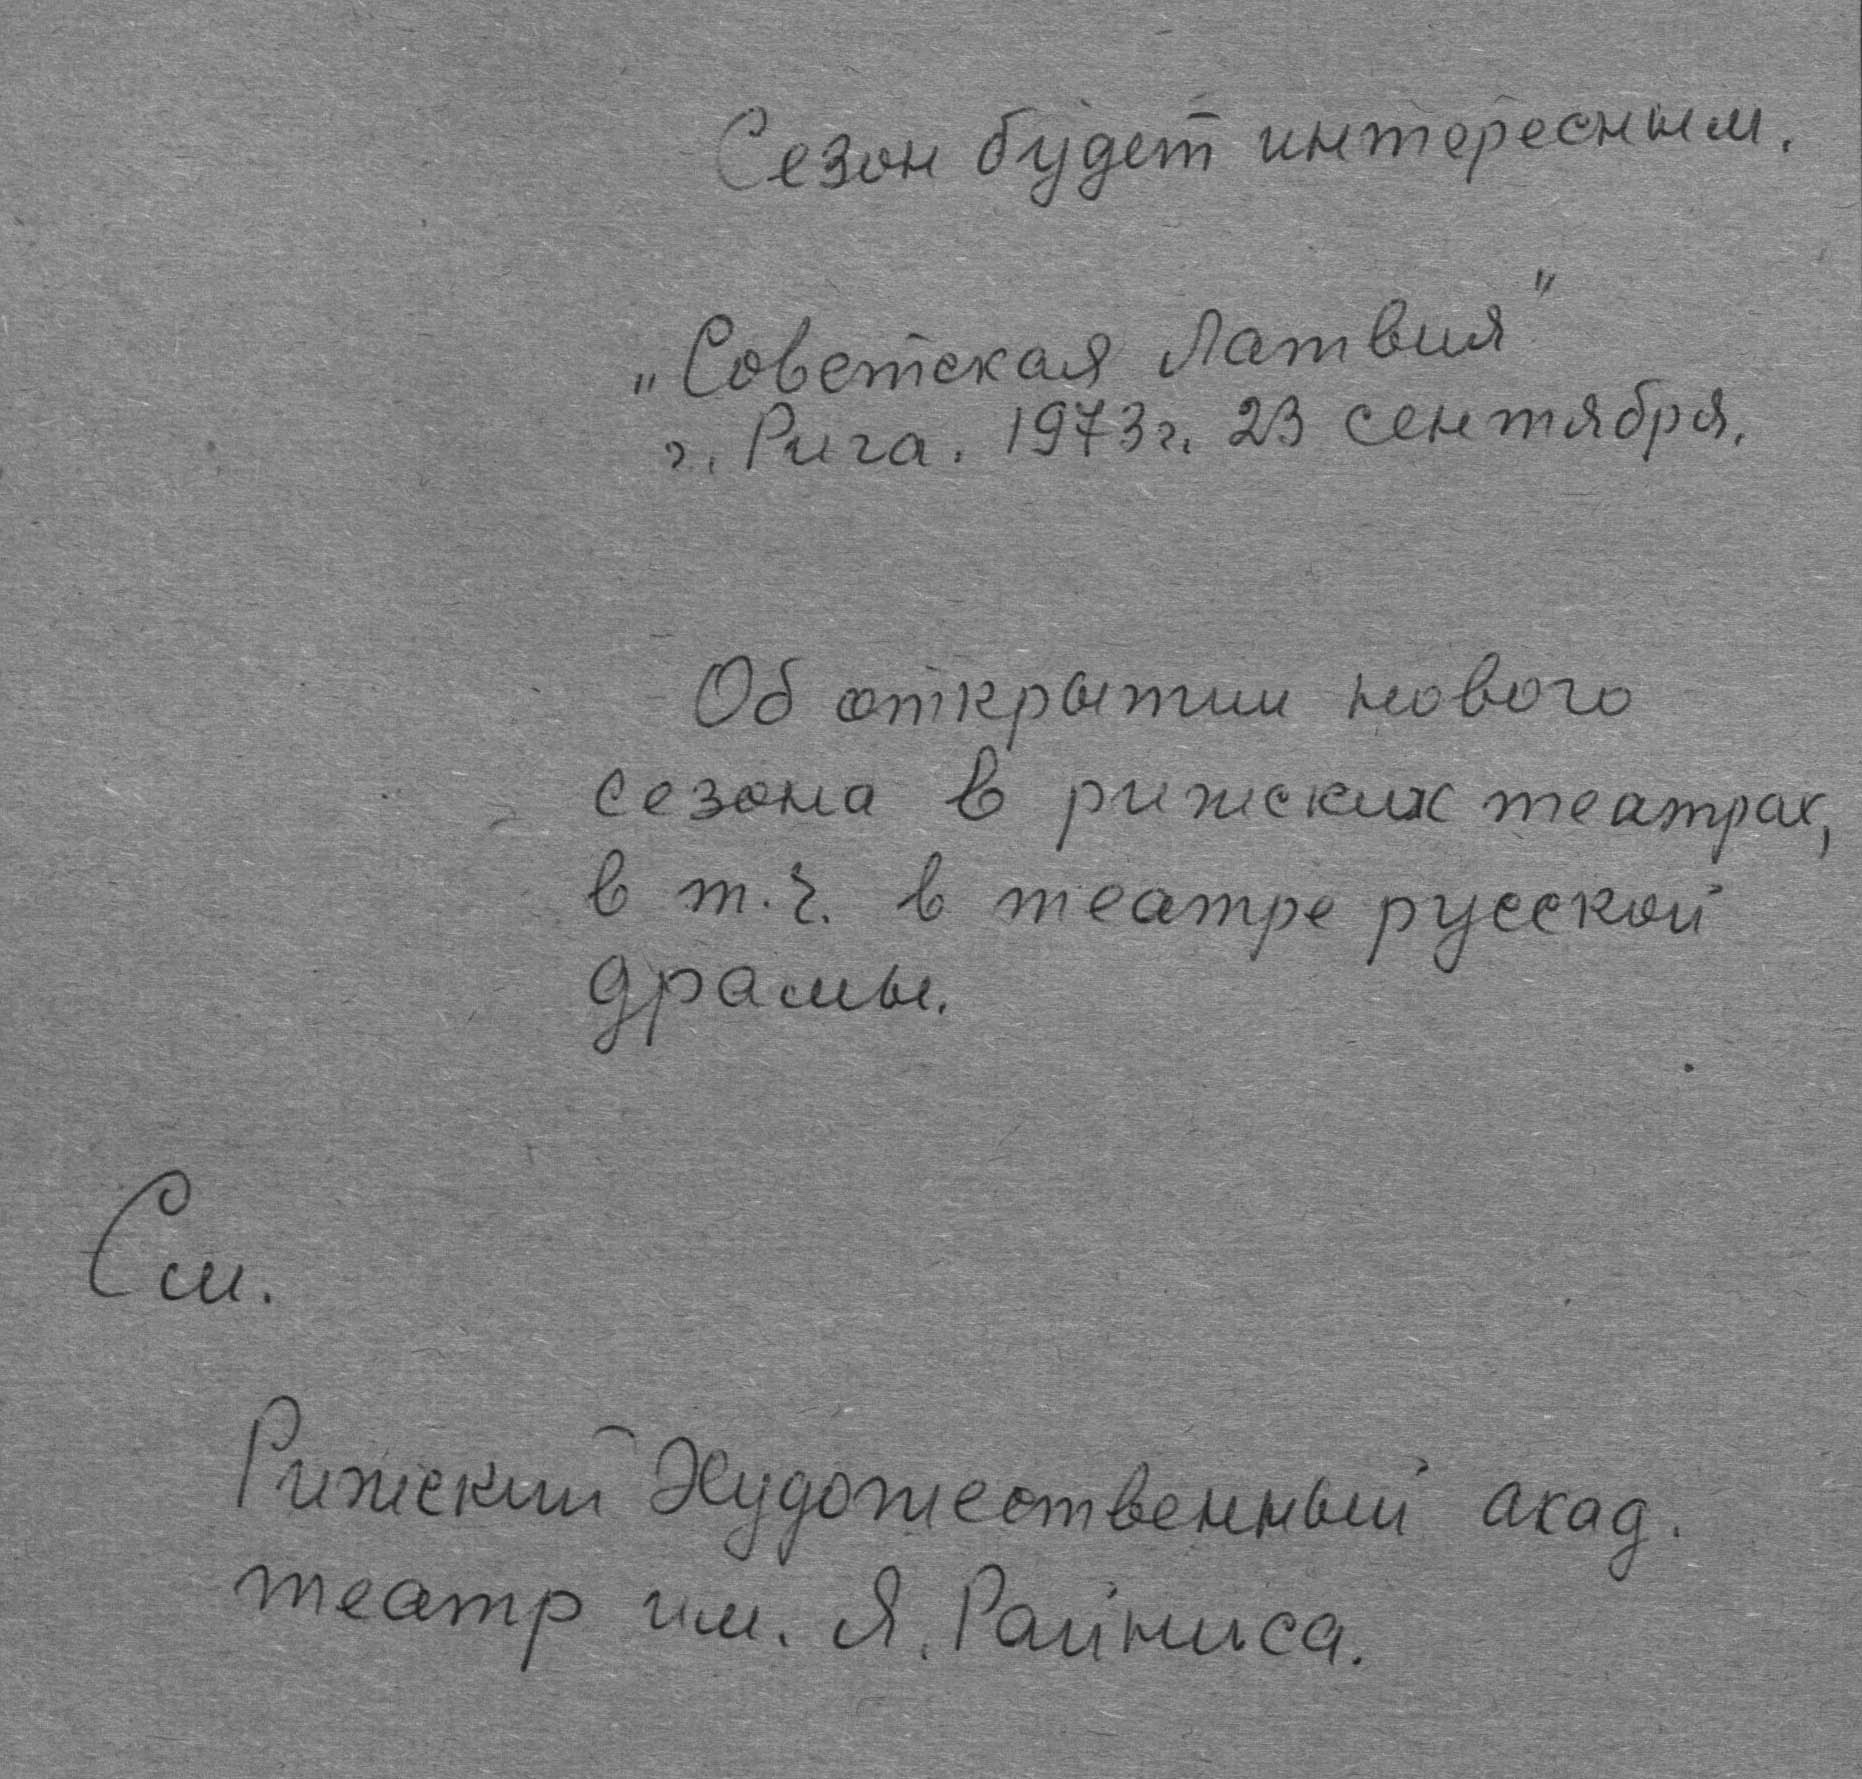 Сезон будет интересным.
„Советская Латвия"
г. Рига. 1973г. 23 сентября.
Об открытии нового
сезона в рижских театрах,
в т.ч. в театре русской
драмы.
См.
Рижский Художественный акад.
театр им. Я. Райниса.